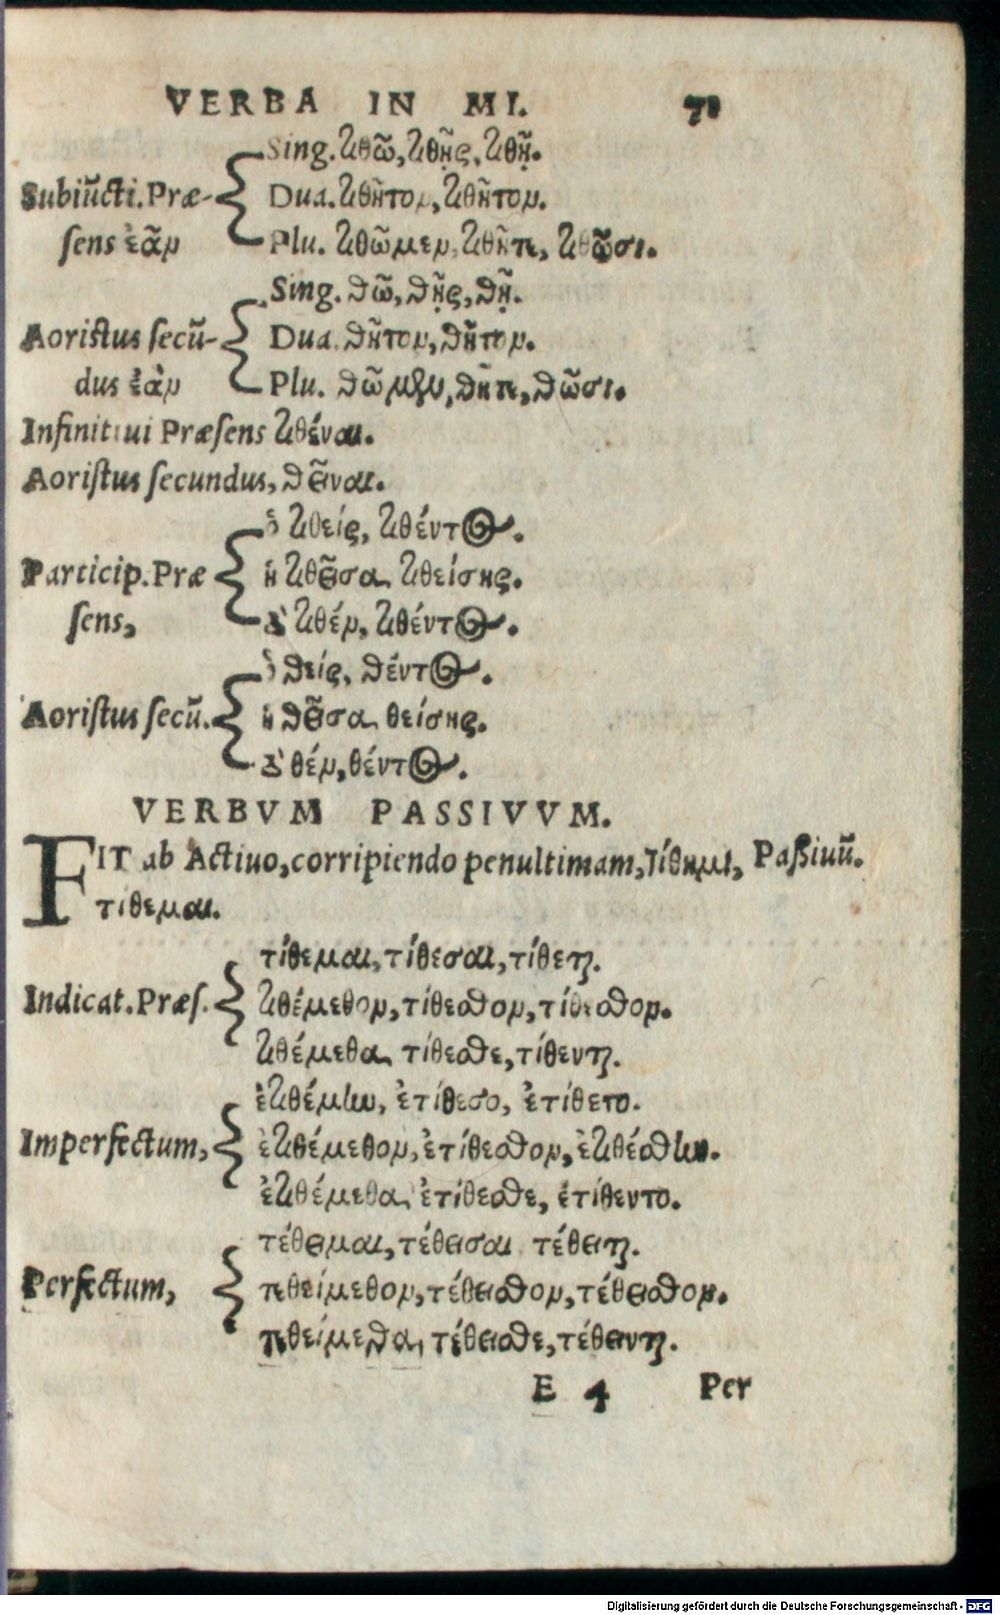 VERBA IN MI. 71
Sing. τιθῶ, τιθῇς, τιθῇ.
Subiũcti. Præ- Dua. τιθῆτον, τιθῆτον.
sens ἐὰν Plu. τιθῶμεν, τιθῆτε, τιθῶσι.
Sing. θῶ, θῇς, θῇ.
Aoristus secũ- Dua. θῆτον, θῆτον.
dus ἐὰν Plu. θῶμεν, θῆτε, θῶσι.
Infinitiui Præsens τιθέναι.
Aoristus secundus, θεῖναι.
ὁ τιθείς, τιθέντος.
Particip. Præ ἡ τιθεῖσα, τιθείσης.
sens, τὸ τιθέν, τιθέντος.
ὁ θείς, θέντος.
Aoristus secũ. ἡ θεῖσα, θείσης.
τὸ θέν, θέντος.
VERBVM PASSIVVM.
FIT ab Actiuo, corripiendo penultimam, τίθημι, Passiuũ.
τιθεμαι.
τίθεμαι, τίθεσαι, τίθεται.
Indicat. Præs. τιθέμεθον, τίθεσθον, τίθεσθον.
τιθέμεθα, τίθεσθε, τίθενται.
ἐτιθέμην, ἐτίθεσο, ἐτίθετο.
Imperfectum, ἐτιθέμεθον, ἐτίθεσθον, ἐτιθέσθην.
ἐτιθέμεθα, ἐτίθεσθε, ἐτίθεντο.
τέθειμαι, τέθεισαι, τέθειται.
Perfectum, τεθείμεθον, τέθεισθον, τέθεισθον.
τεθείμεθα, τέθεισθε, τέθεινται.
E 4 Per
Digitalisierung gefördert durch die Deutsche Forschungsgemeinschaft - DFG